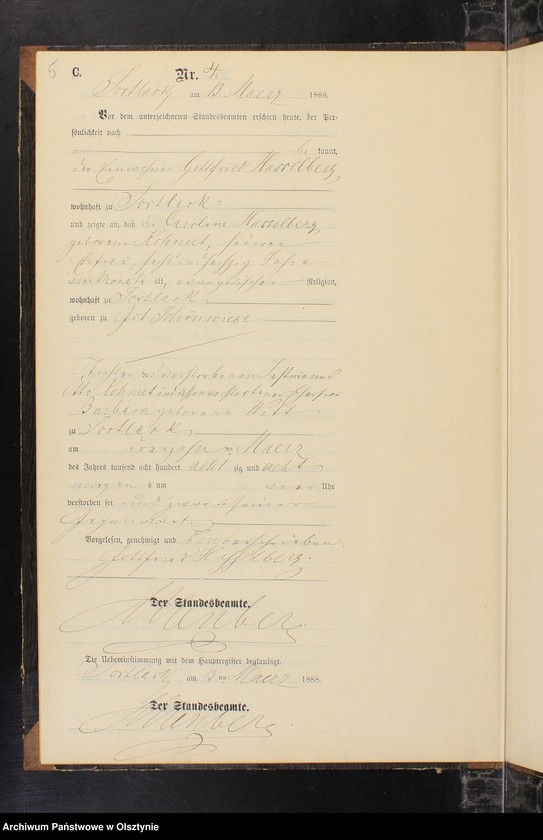 5
C.
Nr. 4.
Sortlack am 13 Maerz 1888.
Vor dem unterzeichneten Standesbeamten erschien heute, der Per-
sönlichkeit nach
be kannt,
der Einwohner Gottfried Hasselberg
wohnhaft zu Sortlack
und zeigte an, daß die Caroline Hasselberg
geborene Kohnert, seine
Ehefrau, sechsundsechzig Jahre
vier Monate alt, evangelischer Religion,
wohnhaft zu Sortlack,
geboren zu Gut Schönwiese
Tochter des verstorbenen
Otto Kohnert und verstorbenen Ehefrau
Barbara geborene Witt
zu Sortlack
am dreizehn ten Maerz
des Jahres tausend acht hundert acht zig und acht
morgens um vier Uhr
verstorben sei und zwar in seiner
Gegenwart.
Vorgelesen, genehmigt und unterschrieben.
Gottfried Hasselberg.
Der Standesbeamte.
Die Uebereinstimmung mit dem Hauptregister beglaubigt.
Sortlack, am 13 ten Maerz 1888.
Der Standesbeamte.
Archiwum Państwowe w Olsztynie